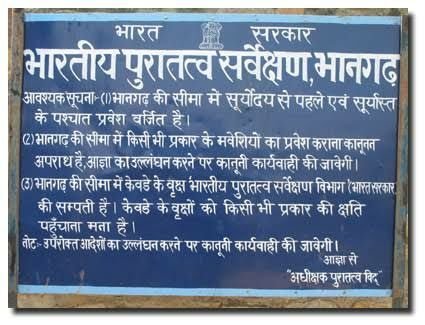 भारत सरकार
भारतीय पुरातत्व सर्वेक्षण, भानगढ़
आवश्यक सूचना:- (1) भानगढ़ की सीमा में सूर्योदय से पहले एवं सूर्यास्त
के पश्चात प्रवेश वर्जित है।
(2) भानगढ़ की सीमा में किसी भी प्रकार के मवेशियों का प्रवेश कराना कानूनन
अपराध है, आज्ञा का उल्लंघन करने पर कानूनी कार्यवाही की जावेगी।
(3) भानगढ़ की सीमा में केवडे के वृक्ष भारतीय पुरातत्व सर्वेक्षण विभाग (भारत सरकार)
की सम्पती है। केवडे के वृक्षों को किसी भी प्रकार की क्षति
पहुँचाना मना है।
नोट:- उपरोक्त आदेशों का उल्लंघन करने पर कानूनी कार्यवाही की जावेगी।
आज्ञा से
"अधीक्षक पुरातत्व विद"